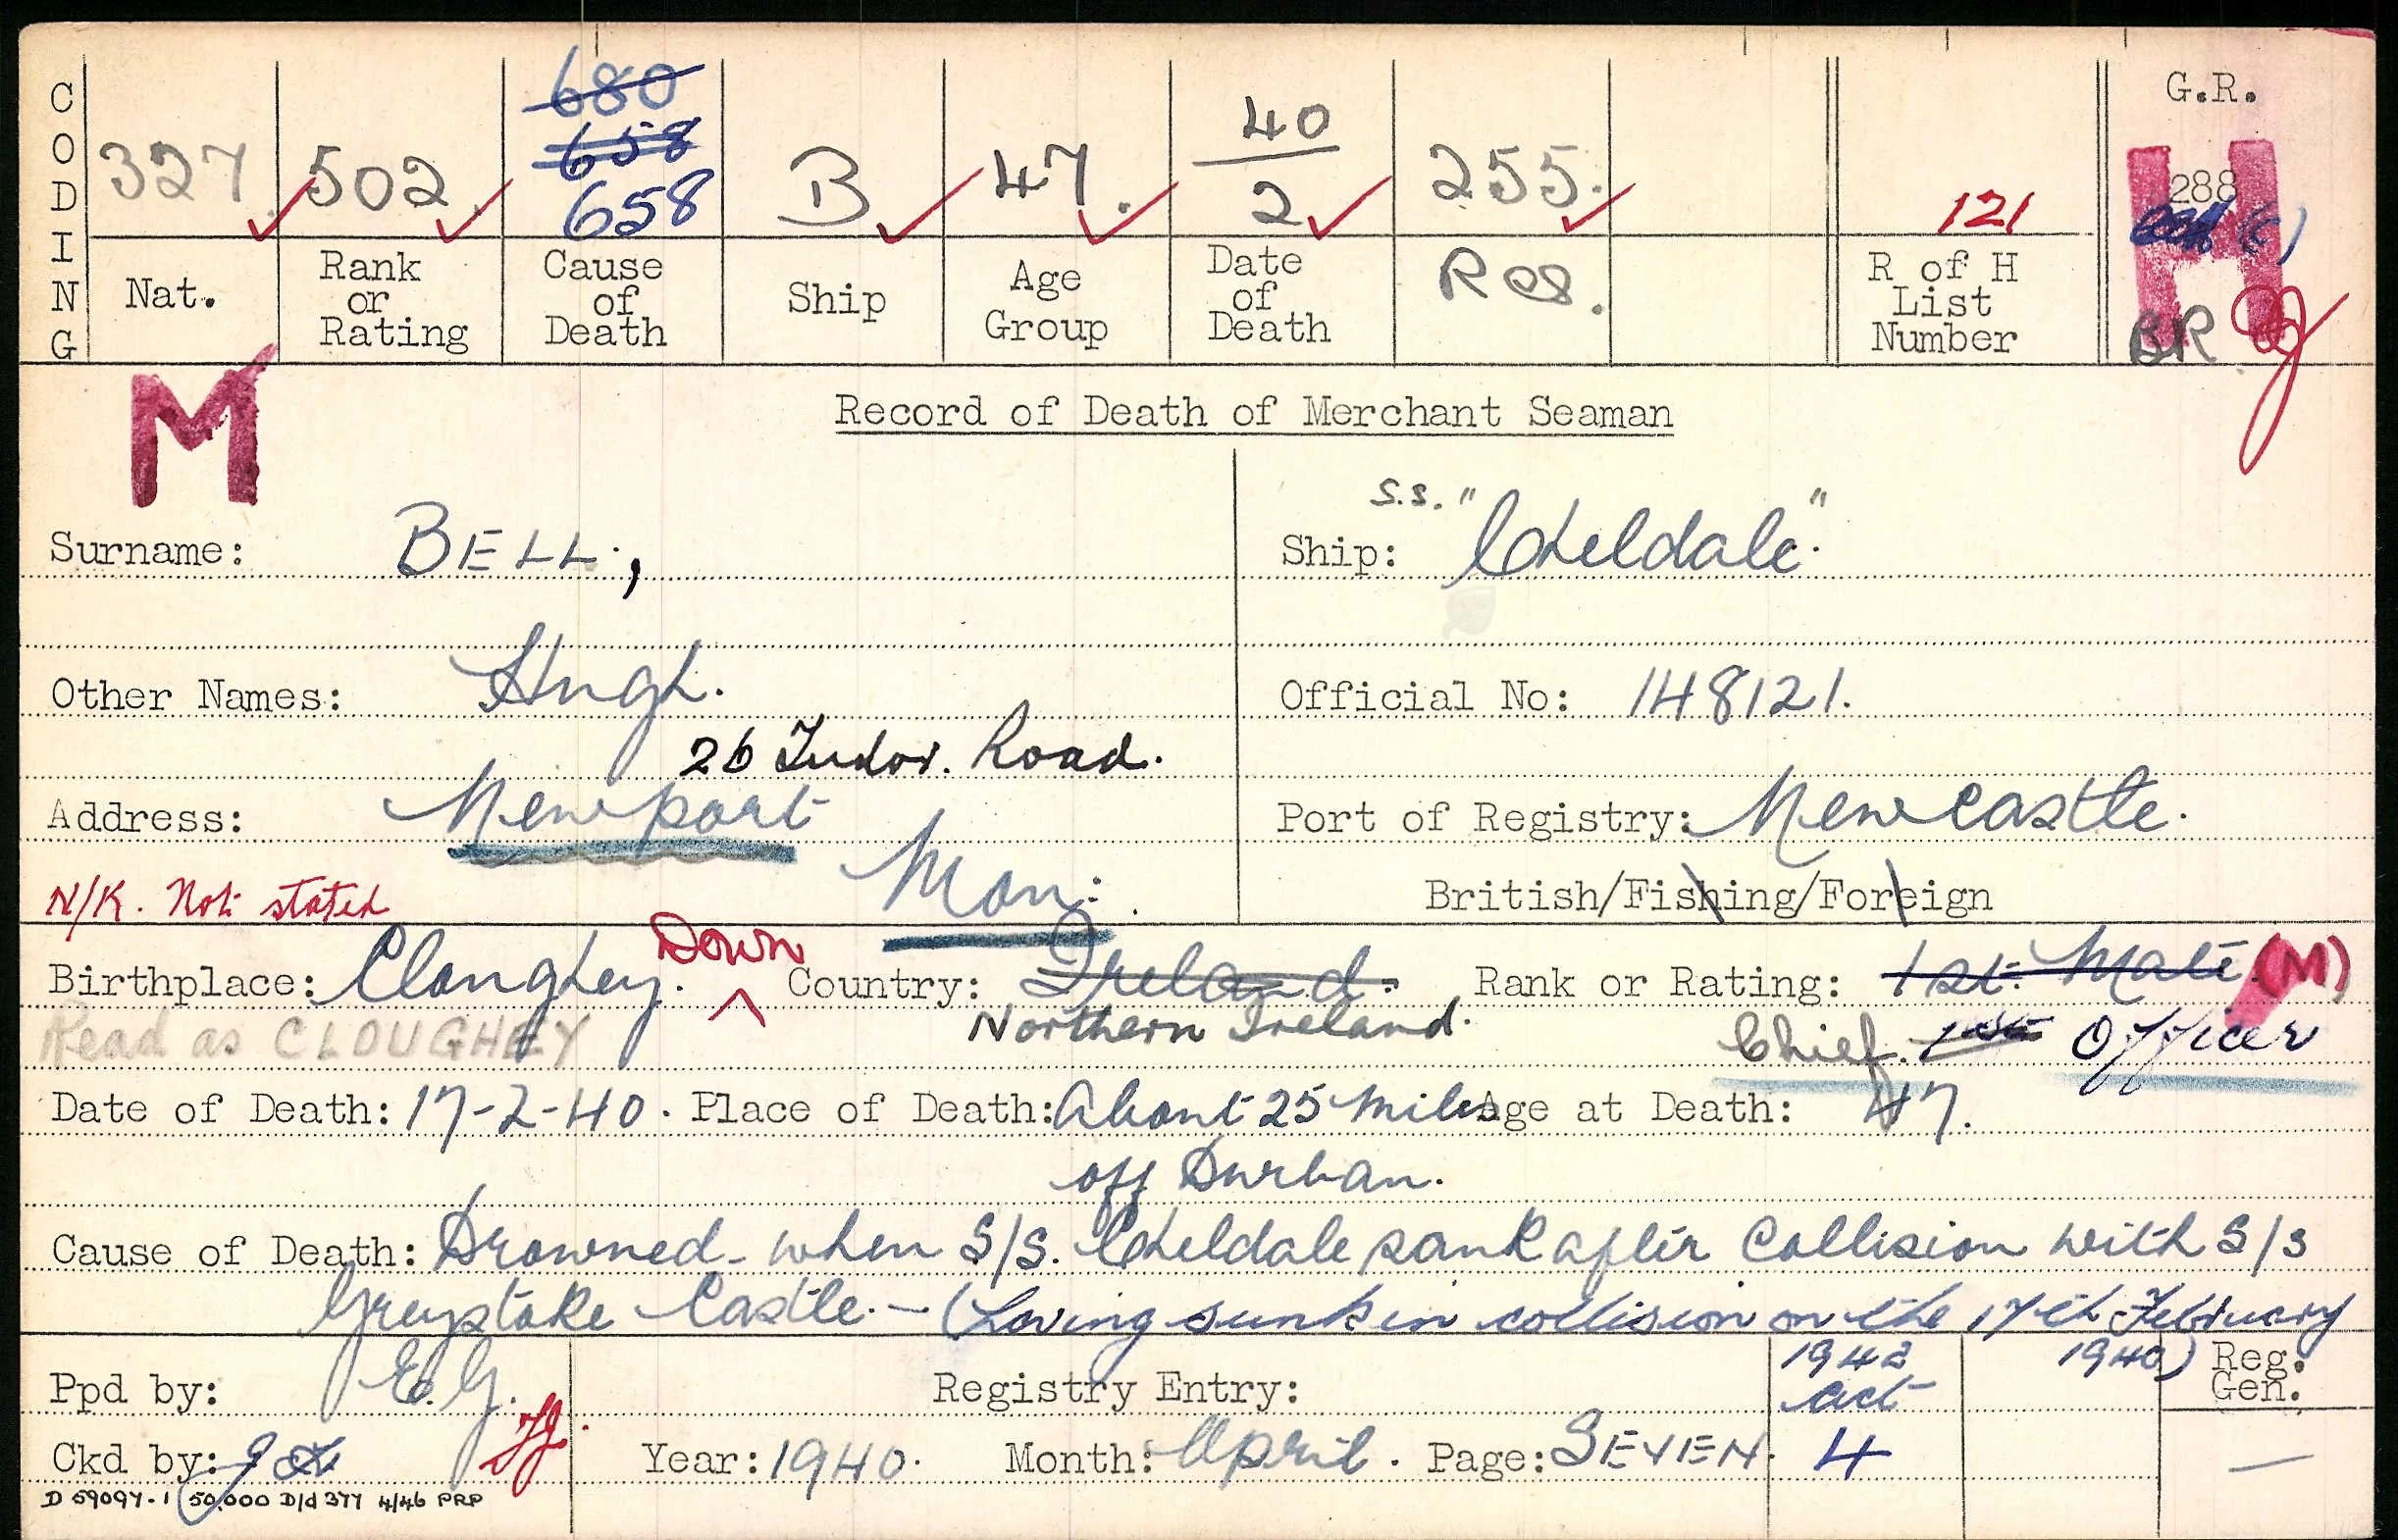 CODING
680
658
40
G.R.
327. 502. 658 B 47. 2 255. 121 288
Nat. Rank or Rating Cause of Death Ship Age Group Date of Death Res. R of H List Number
H
BR
M
Record of Death of Merchant Seaman
Surname: BELL, Ship: S.S. "Cheldale".
Other Names: Hugh. Official No: 148121.
26 Tudor. Road.
Address: Newport Port of Registry: Newcastle.
N/K. Not stated Mon: British/Fishing/Foreign
Birthplace: Cloughey. Down Country: Ireland. Rank or Rating: 1st. Mate. (M)
Read as CLOUGHEY Northern Ireland. Chief. 1st Officer
Date of Death: 17-2-40. Place of Death: About 25 miles Age at Death: 47.
off Durban.
Cause of Death: Drowned - when S/S. Cheldale sank after Collision with S/S
Greystoke Castle. - (Loving sunk in collision on the 17th February
1940)
Ppd by: E.G. Registry Entry: 1942 Act Reg. Gen.
Ckd by: Year: 1940. Month: April. Page: SEVEN. 4 —
D 59097-1 50,000 D/d 377 4/46 PRP